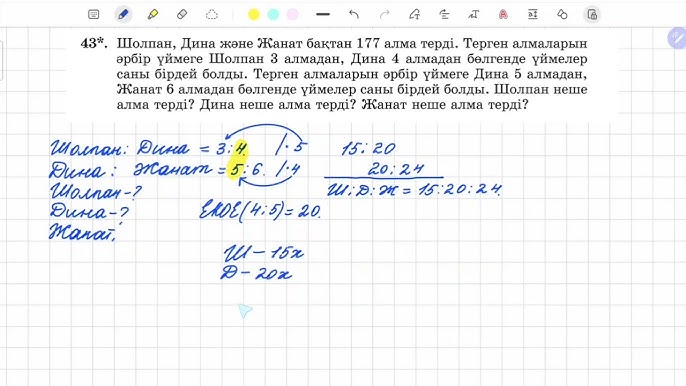 43*. Шолпан, Дина және Жанат бақтан 177 алма терді. Терген алмаларын
әрбір үймеге Шолпан 3 алмадан, Дина 4 алмадан бөлгенде үймелер
саны бірдей болды. Терген алмаларын әрбір үймеге Дина 5 алмадан,
Жанат 6 алмадан бөлгенде үймелер саны бірдей болды. Шолпан неше
алма терді? Дина неше алма терді? Жанат неше алма терді?
Шолпан : Дина = 3 : 4. /·5 15 : 20
Дина : Жанат = 5 : 6. /·4 20 : 24
Шолпан - ? Ш : Д : Ж = 15 : 20 : 24.
Дина - ? ЕКОЕ(4;5) = 20.
Жанат.
Ш - 15х
Д - 20х